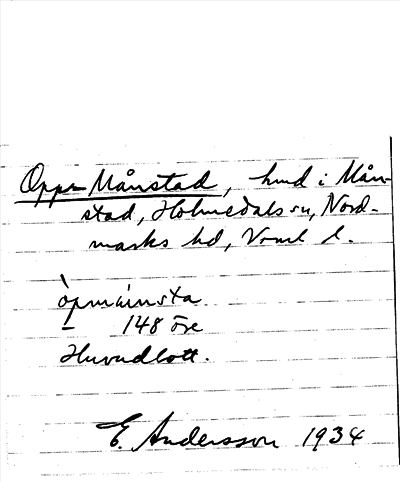 Oppr Månstad, hmd i Mån-
stad, Holmedals sn, Nord-
marks hd, Vrml l.
òpmúinsta
– 148 öre
Huvudlott.
E. Andersson 1934